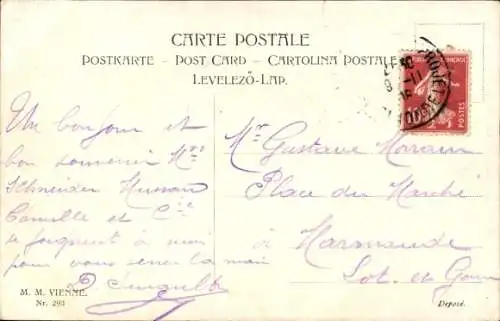 CARTE POSTALE
POSTKARTE – POST CARD – CARTOLINA POSTALE
LEVELEZŐ-LAP.
Un bonjour et
bon souvenir Mrs
Schneider
Camille et Cie
se joignent à moi
pour vous serrer la main
Mr Gustave
Place du Marché
à Marmande
Lot et Gar
M. M. VIENNE.
Nr. 293
Deposé.